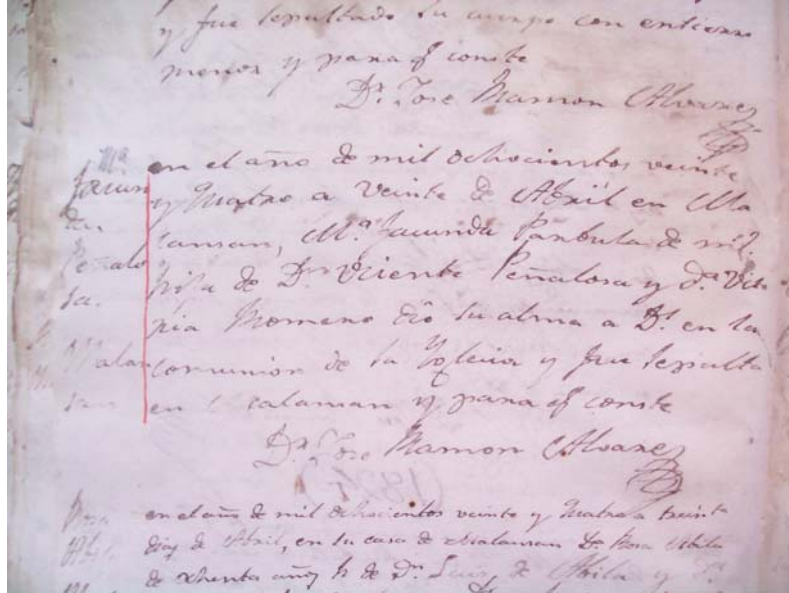 y fue sepultado su cuerpo con entierro
menor y para q̃ conste
Dr. Jose Ramon Alvarez
Mª Jacun
da
Peñalo
sa.
Malan
san
en el año de mil ochocientos veinte
y Quatro a Veinte de Abril en Ma
lansan, Mª Jacunda Parbula de
hija de Dn Vicente Peñalosa y Dª Vito
ria Moreno dio su alma a Ds. en la
comunion de la Yglecia y fue sepulta
en Malansan y para q̃ conste
Dr. Jose Ramon Alvarez
(1824)
Rosa
Abila
en el año de mil ochocientos veinte y Quatro a treinta
dias de Abril, en su casa de Malansan Dª Rosa Abila
de ochenta años h de Dn Luis de Abila y Dª